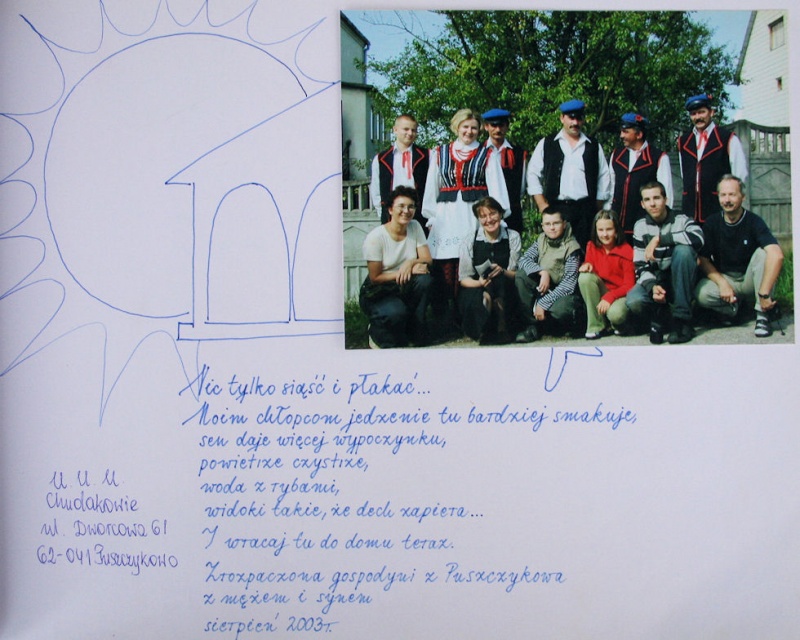 Nic tylko siąść i płakać...
Moim chłopcom jedzenie tu bardziej smakuje,
sen daje więcej wypoczynku,
powietrze czystsze,
woda z rybami,
widoki takie, że dech zapiera...
I wracaj tu do domu teraz.
Zrozpaczona gospodyni z Puszczykowa
z mężem i synem
sierpień 2003r.
U. U. M.
Chudakowie
ul. Dworcowa 61
62-041 Puszczykowo